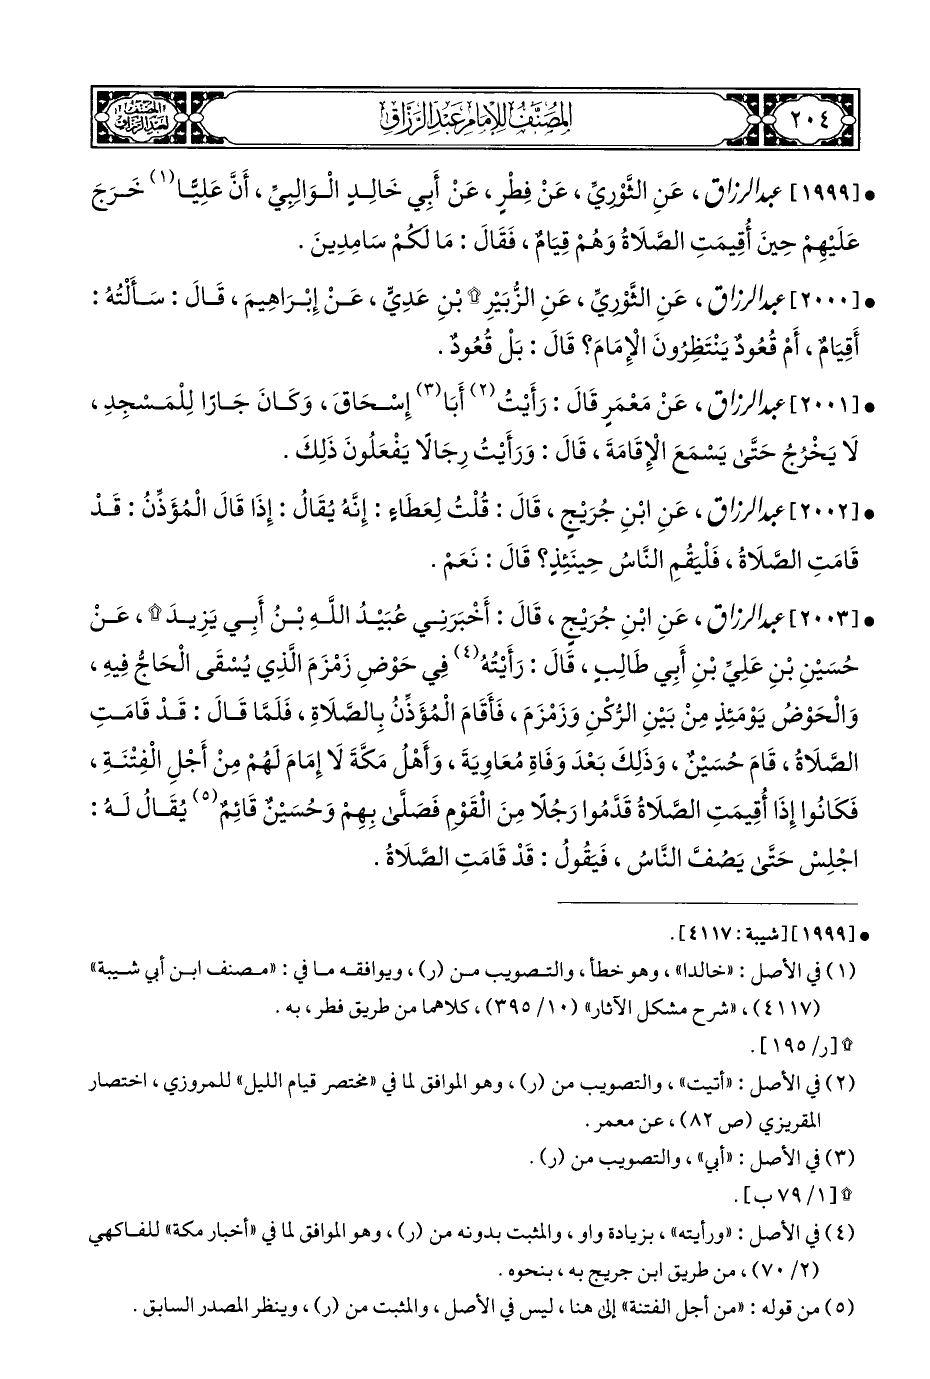 ٢٠٤
المصنف للإمام عبد الرزاق
المصنف لعبد الرزاق
• [١٩٩٩] عبد الرزاق، عَنِ الثَّوْرِيِّ، عَنْ فِطْرٍ، عَنْ أَبِي خَالِدٍ الْوَالِبِيِّ، أَنَّ عَلِيًّا(١) خَرَجَ
عَلَيْهِمْ حِينَ أُقِيمَتِ الصَّلَاةُ وَهُمْ قِيَامٌ، فَقَالَ: مَا لَكُمْ سَامِدِينَ.
• [٢٠٠٠] عبد الرزاق، عَنِ الثَّوْرِيِّ، عَنِ الزُّبَيْرِ ۩ بْنِ عَدِيٍّ، عَنْ إِبْرَاهِيمَ، قَالَ: سَأَلْتُهُ:
أَقِيَامٌ، أَمْ قُعُودٌ يَنْتَظِرُونَ الْإِمَامَ؟ قَالَ: بَلْ قُعُودٌ.
• [٢٠٠١] عبد الرزاق، عَنْ مَعْمَرٍ قَالَ: رَأَيْتُ(٢) أَبَا(٣) إِسْحَاقَ، وَكَانَ جَارًا لِلْمَسْجِدِ،
لَا يَخْرُجُ حَتَّى يَسْمَعَ الْإِقَامَةَ، قَالَ: وَرَأَيْتُ رِجَالًا يَفْعَلُونَ ذَلِكَ.
• [٢٠٠٢] عبد الرزاق، عَنِ ابْنِ جُرَيْجٍ، قَالَ: قُلْتُ لِعَطَاءٍ: إِنَّهُ يُقَالُ: إِذَا قَالَ الْمُؤَذِّنُ: قَدْ
قَامَتِ الصَّلَاةُ، فَلْيَقُمِ النَّاسُ حِينَئِذٍ؟ قَالَ: نَعَمْ.
• [٢٠٠٣] عبد الرزاق، عَنِ ابْنِ جُرَيْجٍ، قَالَ: أَخْبَرَنِي عُبَيْدُ اللَّهِ بْنُ أَبِي يَزِيدَ ۩، عَنْ
حُسَيْنِ بْنِ عَلِيِّ بْنِ أَبِي طَالِبٍ، قَالَ: رَأَيْتُهُ(٤) فِي حَوْضِ زَمْزَمَ الَّذِي يُسْقَى الْحَاجُّ فِيهِ،
وَالْحَوْضُ يَوْمَئِذٍ مِنْ بَيْنِ الرُّكْنِ وَزَمْزَمَ، فَأَقَامَ الْمُؤَذِّنُ بِالصَّلَاةِ، فَلَمَّا قَالَ: قَدْ قَامَتِ
الصَّلَاةُ، قَامَ حُسَيْنٌ، وَذَلِكَ بَعْدَ وَفَاةِ مُعَاوِيَةَ، وَأَهْلُ مَكَّةَ لَا إِمَامَ لَهُمْ مِنْ أَجْلِ الْفِتْنَةِ،
فَكَانُوا إِذَا أُقِيمَتِ الصَّلَاةُ قَدَّمُوا رَجُلًا مِنَ الْقَوْمِ فَصَلَّى بِهِمْ وَحُسَيْنٌ قَائِمٌ(٥) يُقَالُ لَهُ:
اجْلِسْ حَتَّى يَصُفَّ النَّاسُ، فَيَقُولُ: قَدْ قَامَتِ الصَّلَاةُ.
• [١٩٩٩] [شيبة: ٤١١٧].
(١) في الأصل: «خالدا»، وهو خطأ، والتصويب من (ر)، ويوافقه ما في: «مصنف ابن أبي شيبة»
(٤١١٧)، «شرح مشكل الآثار» (١٠/ ٣٩٥)، كلاهما من طريق فطر، به.
۩ [ر/ ١٩٥].
(٢) في الأصل: «أتيت»، والتصويب من (ر)، وهو الموافق لما في «مختصر قيام الليل» للمروزي، اختصار
المقريزي (ص ٨٢)، عن معمر.
(٣) في الأصل: «أبي»، والتصويب من (ر).
۩ [١/ ٧٩ ب].
(٤) في الأصل: «ورأيته»، بزيادة واو، والمثبت بدونه من (ر)، وهو الموافق لما في «أخبار مكة» للفاكهي
(٢/ ٧٠)، من طريق ابن جريج به، بنحوه.
(٥) من قوله: «من أجل الفتنة» إلى هنا، ليس في الأصل، والمثبت من (ر)، وينظر المصدر السابق.